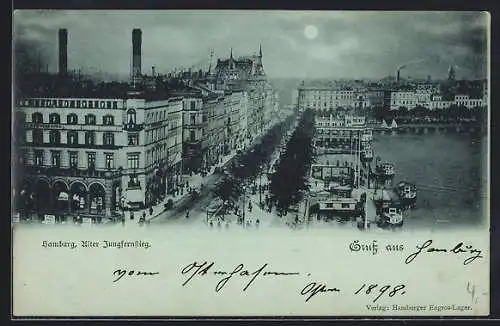 Hamburg, Alter Jungfernstieg.
Gruß aus Hamburg
vom Osterhasen
Ostern 1898.
Verlag: Hamburger Engros-Lager.